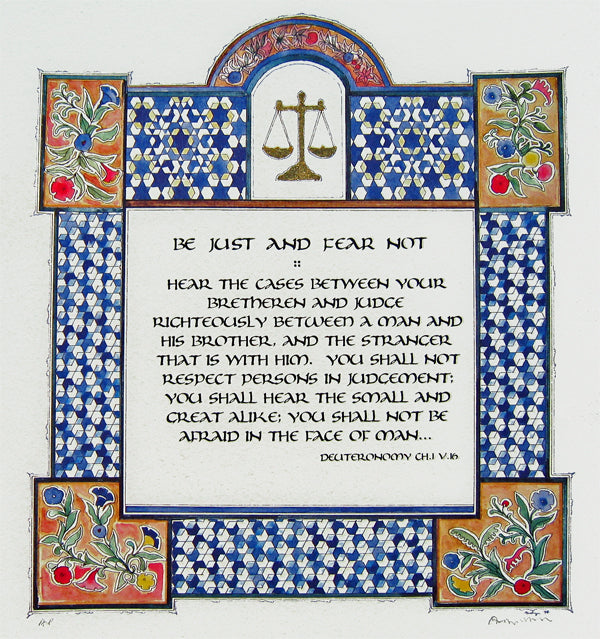 BE JUST AND FEAR NOT
::
HEAR THE CASES BETWEEN YOUR
BRETHEREN AND JUDGE
RIGHTEOUSLY BETWEEN A MAN AND
HIS BROTHER, AND THE STRANGER
THAT IS WITH HIM. YOU SHALL NOT
RESPECT PERSONS IN JUDGEMENT;
YOU SHALL HEAR THE SMALL AND
GREAT ALIKE; YOU SHALL NOT BE
AFRAID IN THE FACE OF MAN...
DEUTERONOMY CH.1 V.16